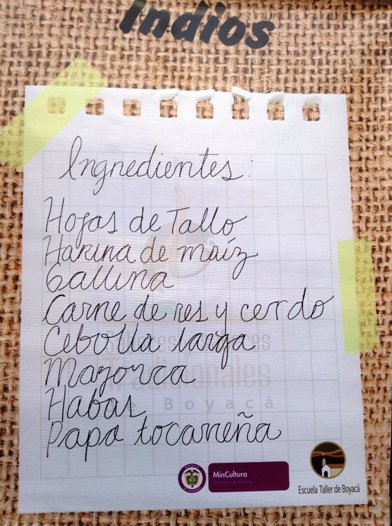 Indios
Ingredientes:
Hojas de Tallo
Harina de maíz
Gallina
Carne de res y cerdo
Cebolla larga
Mazorca
Habas
Papa tocareña
Boyacá
MinCultura
Ministerio de Cultura
Escuela Taller de Boyacá